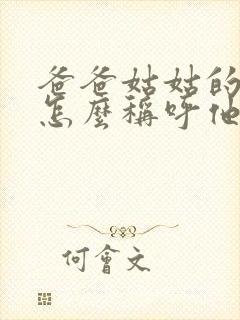 爸爸姑姑的
怎麼稱呼他
何會文